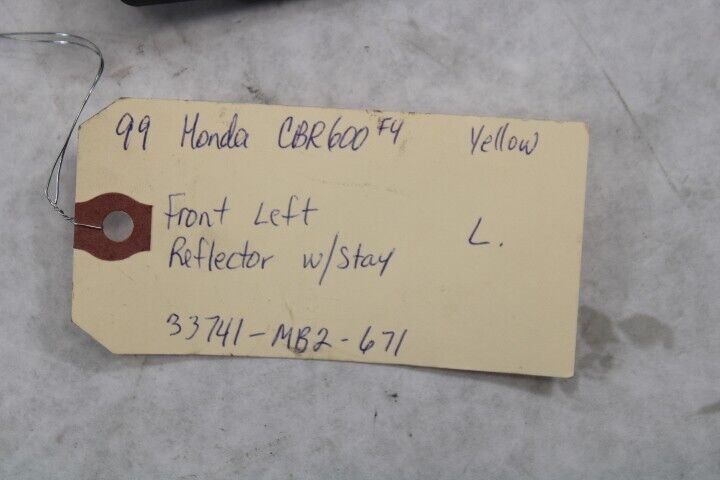 99 Honda CBR600 F4 Yellow
Front Left
Reflector w/Stay L.
33741-MB2-671